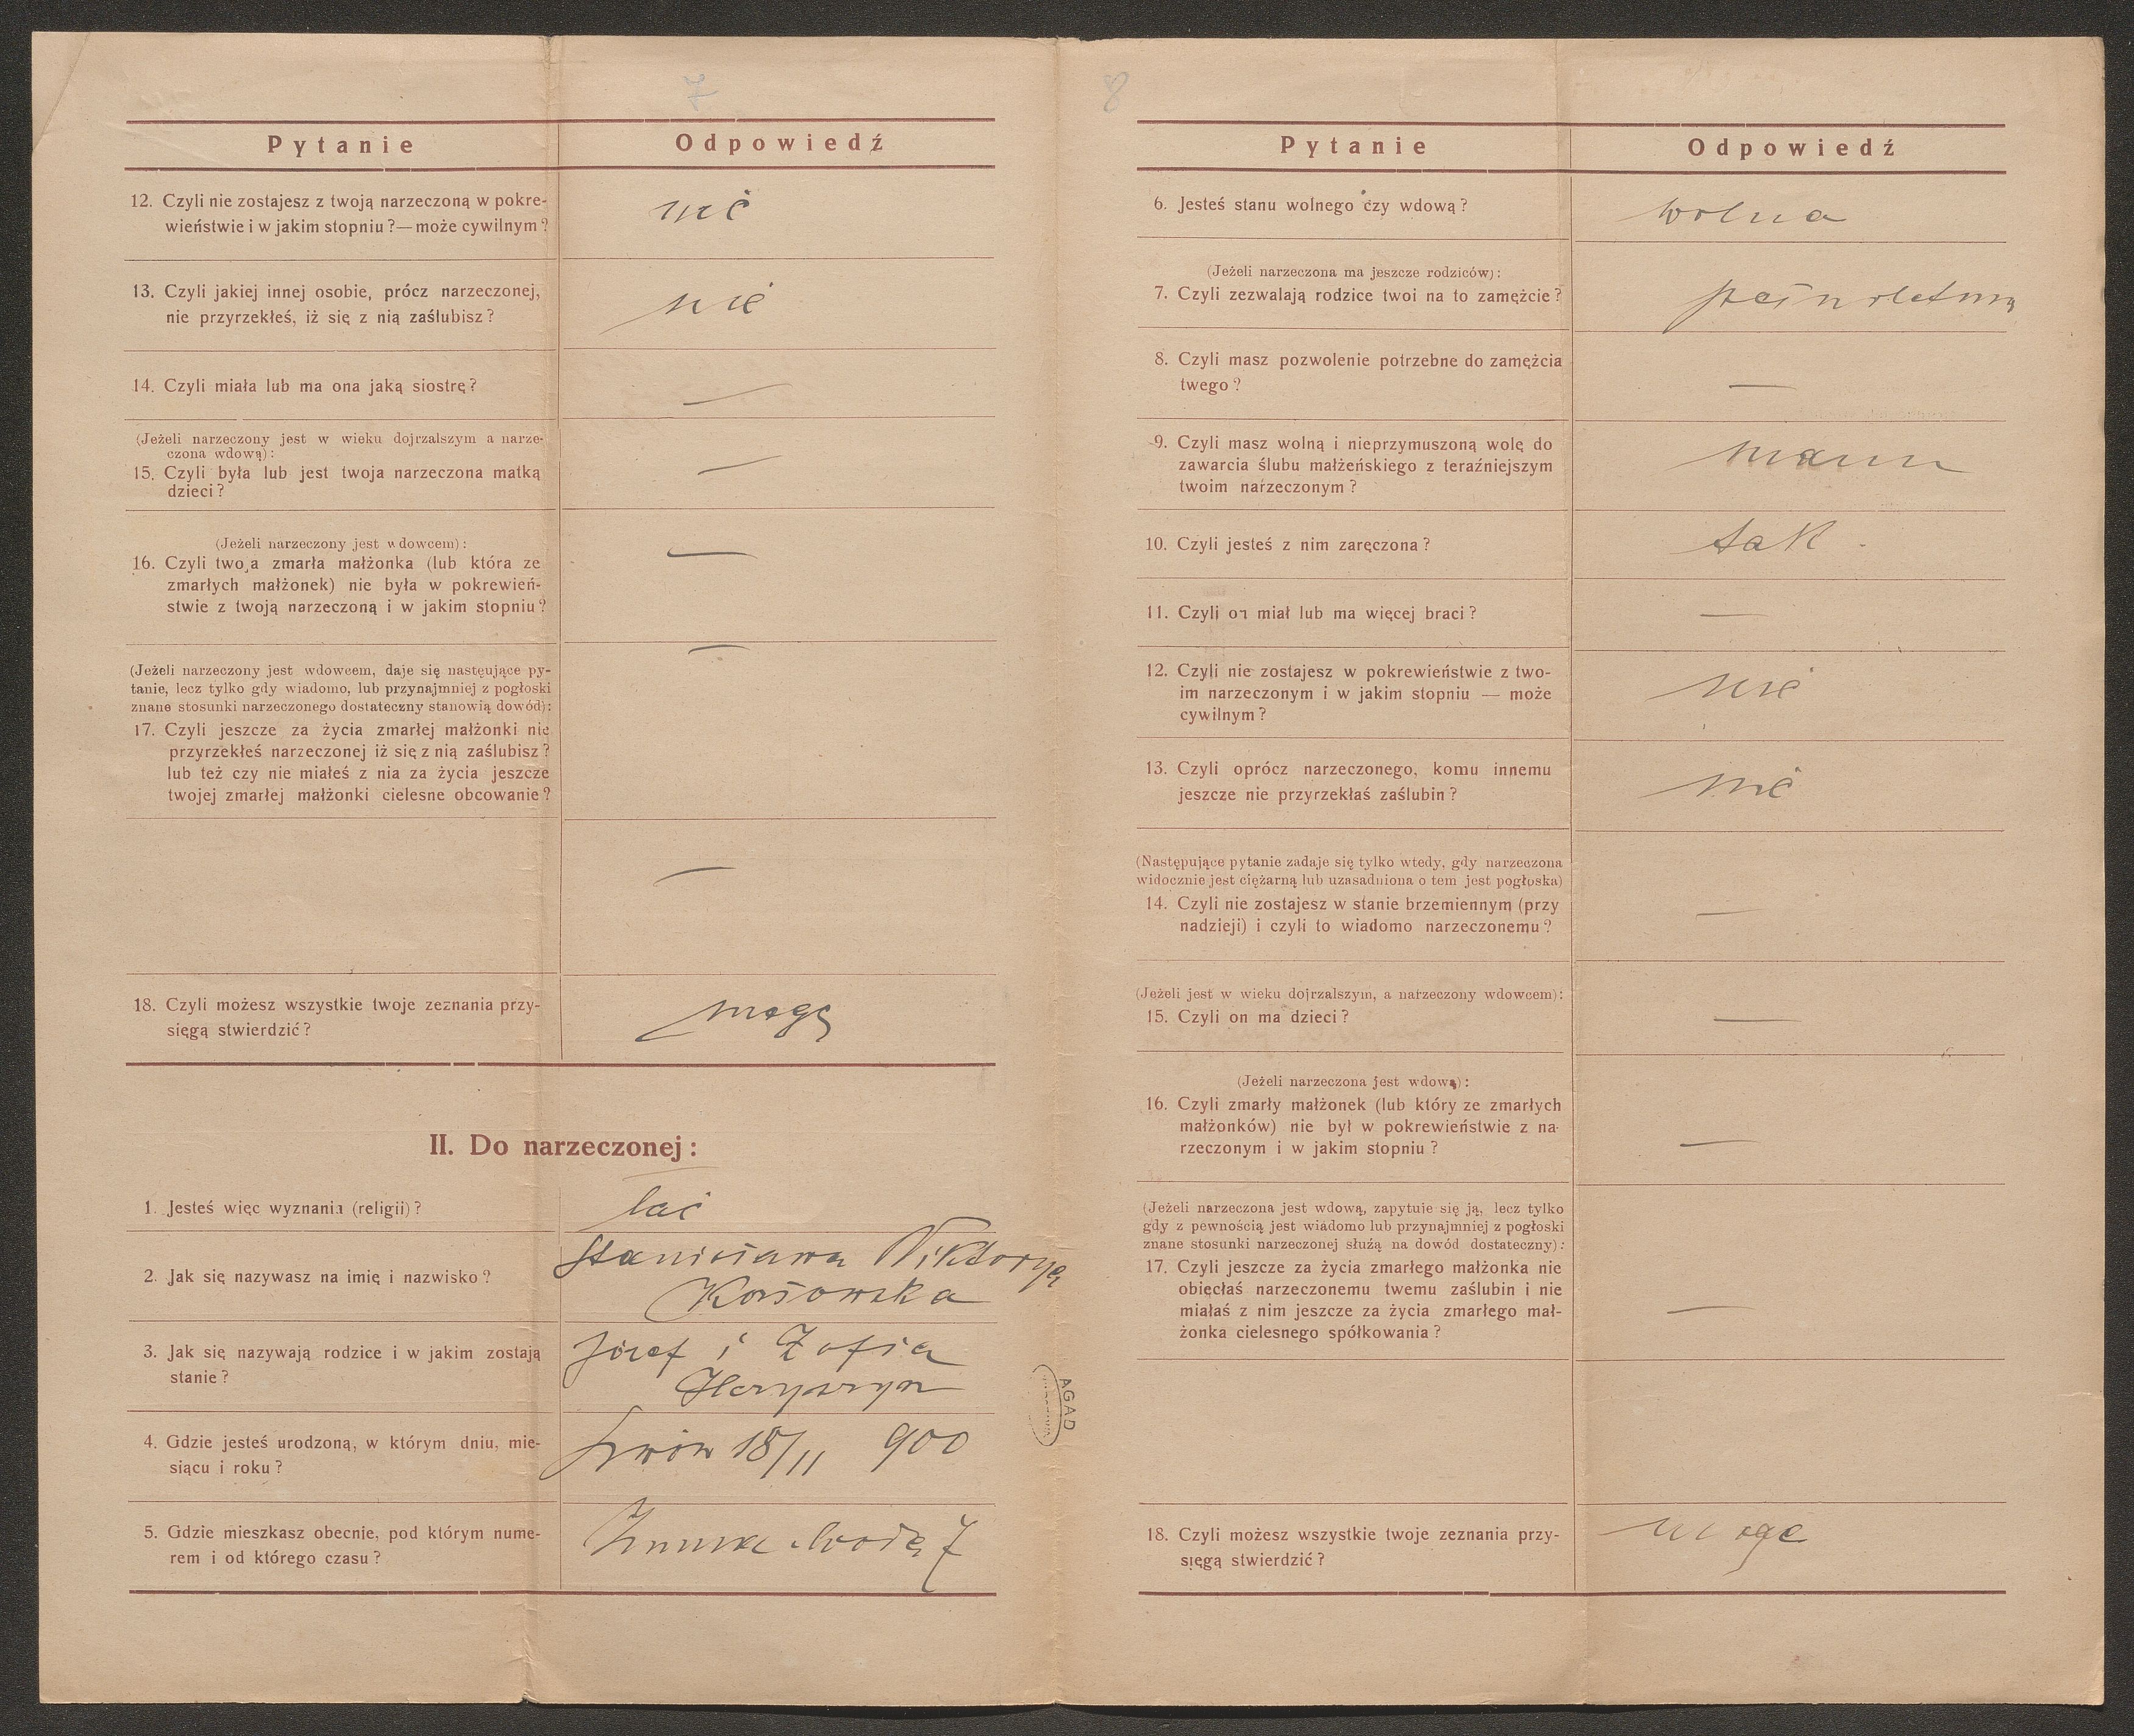 7
Pytanie Odpowiedź
12. Czyli nie zostajesz z twoją narzeczoną w pokre-
wieństwie i w jakim stopniu?—może cywilnym?
nie
13. Czyli jakiej innej osobie, prócz narzeczonej,
nie przyrzekłeś, iż się z nią zaślubisz?
nie
14. Czyli miała lub ma ona jaką siostrę?
—
(Jeżeli narzeczony jest w wieku dojrzalszym a narze-
czona wdową):
15. Czyli była lub jest twoja narzeczona matką
dzieci?
—
(Jeżeli narzeczony jest wdowcem):
16. Czyli twoja zmarła małżonka (lub która ze
zmarłych małżonek) nie była w pokrewień-
stwie z twoją narzeczoną i w jakim stopniu?
—
—
(Jeżeli narzeczony jest wdowcem, daje się następujące py-
tanie, lecz tylko gdy wiadomo, lub przynajmniej z pogłoski
znane stosunki narzeczonego dostateczny stanowią dowód):
17. Czyli jeszcze za życia zmarłej małżonki nie
przyrzekłeś narzeczonej iż się z nią zaślubisz?
lub też czy nie miałeś z nia za życia jeszcze
twojej zmarłej małżonki cielesne obcowanie?
—
18. Czyli możesz wszystkie twoje zeznania przy-
sięgą stwierdzić?
mogę
II. Do narzeczonej:
1. Jesteś więc wyznania (religii)?
łać
2. Jak się nazywasz na imię i nazwisko?
Stanisława Wiktorya
Kossowska
3. Jak się nazywają rodzice i w jakim zostają
stanie?
Józef i Zofia
4. Gdzie jesteś urodzoną, w którym dniu, mie-
siącu i roku?
Lwów 18/11 900
5. Gdzie mieszkasz obecnie, pod którym nume-
rem i od którego czasu?
Zimna Woda 7
AGAD
8
Pytanie Odpowiedź
6. Jesteś stanu wolnego czy wdową?
wolna
(Jeżeli narzeczona ma jeszcze rodziców):
7. Czyli zezwalają rodzice twoi na to zamężcie?
pełnoletnia
8. Czyli masz pozwolenie potrzebne do zamężcia
twego?
—
9. Czyli masz wolną i nieprzymuszoną wolę do
zawarcia ślubu małżeńskiego z teraźniejszym
twoim narzeczonym?
mam
10. Czyli jesteś z nim zaręczona?
tak
11. Czyli on miał lub ma więcej braci?
—
12. Czyli nie zostajesz w pokrewieństwie z two-
im narzeczonym i w jakim stopniu — może
cywilnym?
nie
13. Czyli oprócz narzeczonego, komu innemu
jeszcze nie przyrzekłaś zaślubin?
nie
(Następujące pytanie zadaje się tylko wtedy, gdy narzeczona
widocznie jest ciężarną lub uzasadniona o tem jest pogłoska)
14. Czyli nie zostajesz w stanie brzemiennym (przy
nadzieji) i czyli to wiadomo narzeczonemu?
—
(Jeżeli jest w wieku dojrzalszym, a narzeczony wdowcem):
15. Czyli on ma dzieci?
—
(Jeżeli narzeczona jest wdową):
16. Czyli zmarły małżonek (lub który ze zmarłych
małżonków) nie był w pokrewieństwie z na-
rzeczonym i w jakim stopniu?
—
(Jeżeli narzeczona jest wdową, zapytuje się ją, lecz tylko
gdy z pewnością jest wiadomo lub przynajmniej z pogłoski
znane stosunki narzeczonej służą na dowód dostateczny):
17. Czyli jeszcze za życia zmarłego małżonka nie
obiecłaś narzeczonemu twemu zaślubin i nie
miałaś z nim jeszcze za życia zmarłego mał-
żonka cielesnego spółkowania?
—
18. Czyli możesz wszystkie twoje zeznania przy-
sięgą stwierdzić?
mogę